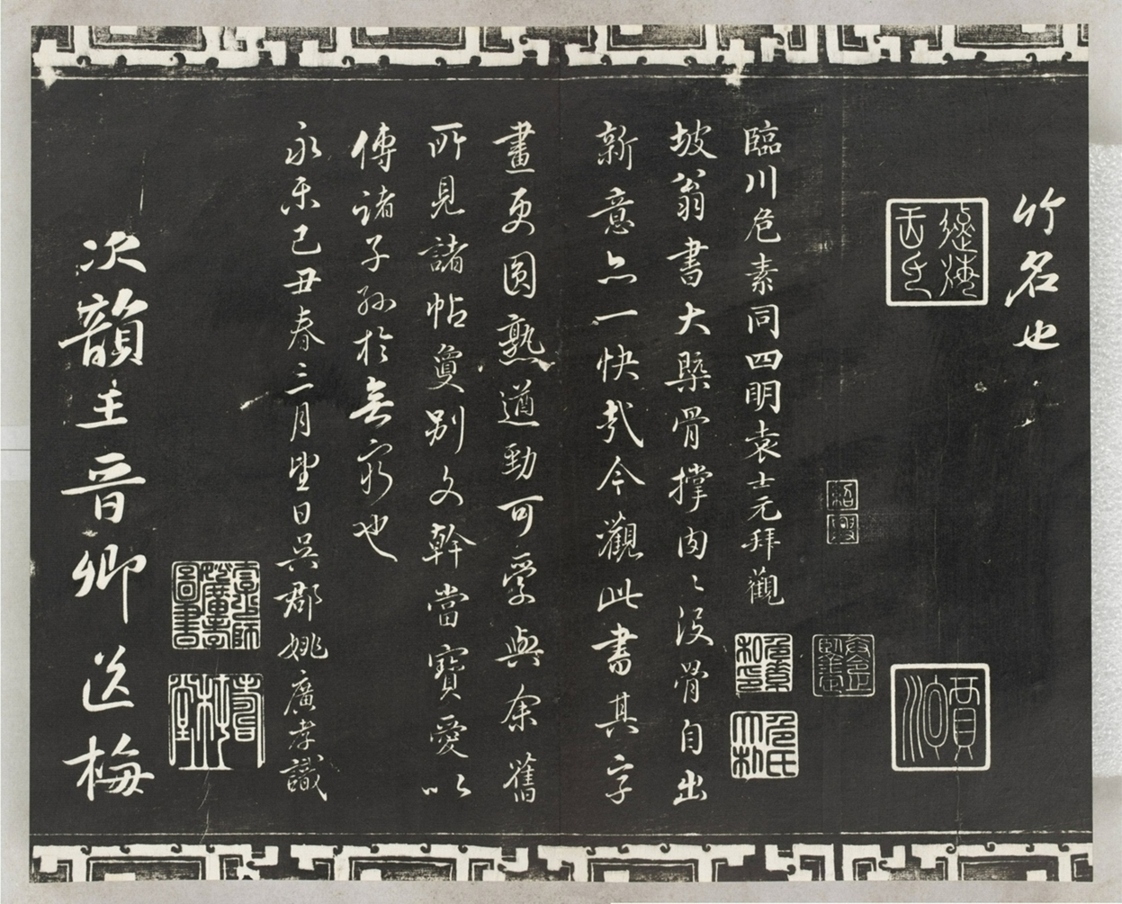 竹名也
臨川危素同四明袁士元拜觀
坡翁書大槩骨撑肉肉没骨自出
新意亦一快哉今觀此書其字
畫更圓熟遒勁可愛與余舊
所見諸帖敻别文幹當寶愛以
傳諸子孫於無窮也
永樂己丑春三月望日吳郡姚廣孝識
次韻王晉卿送梅